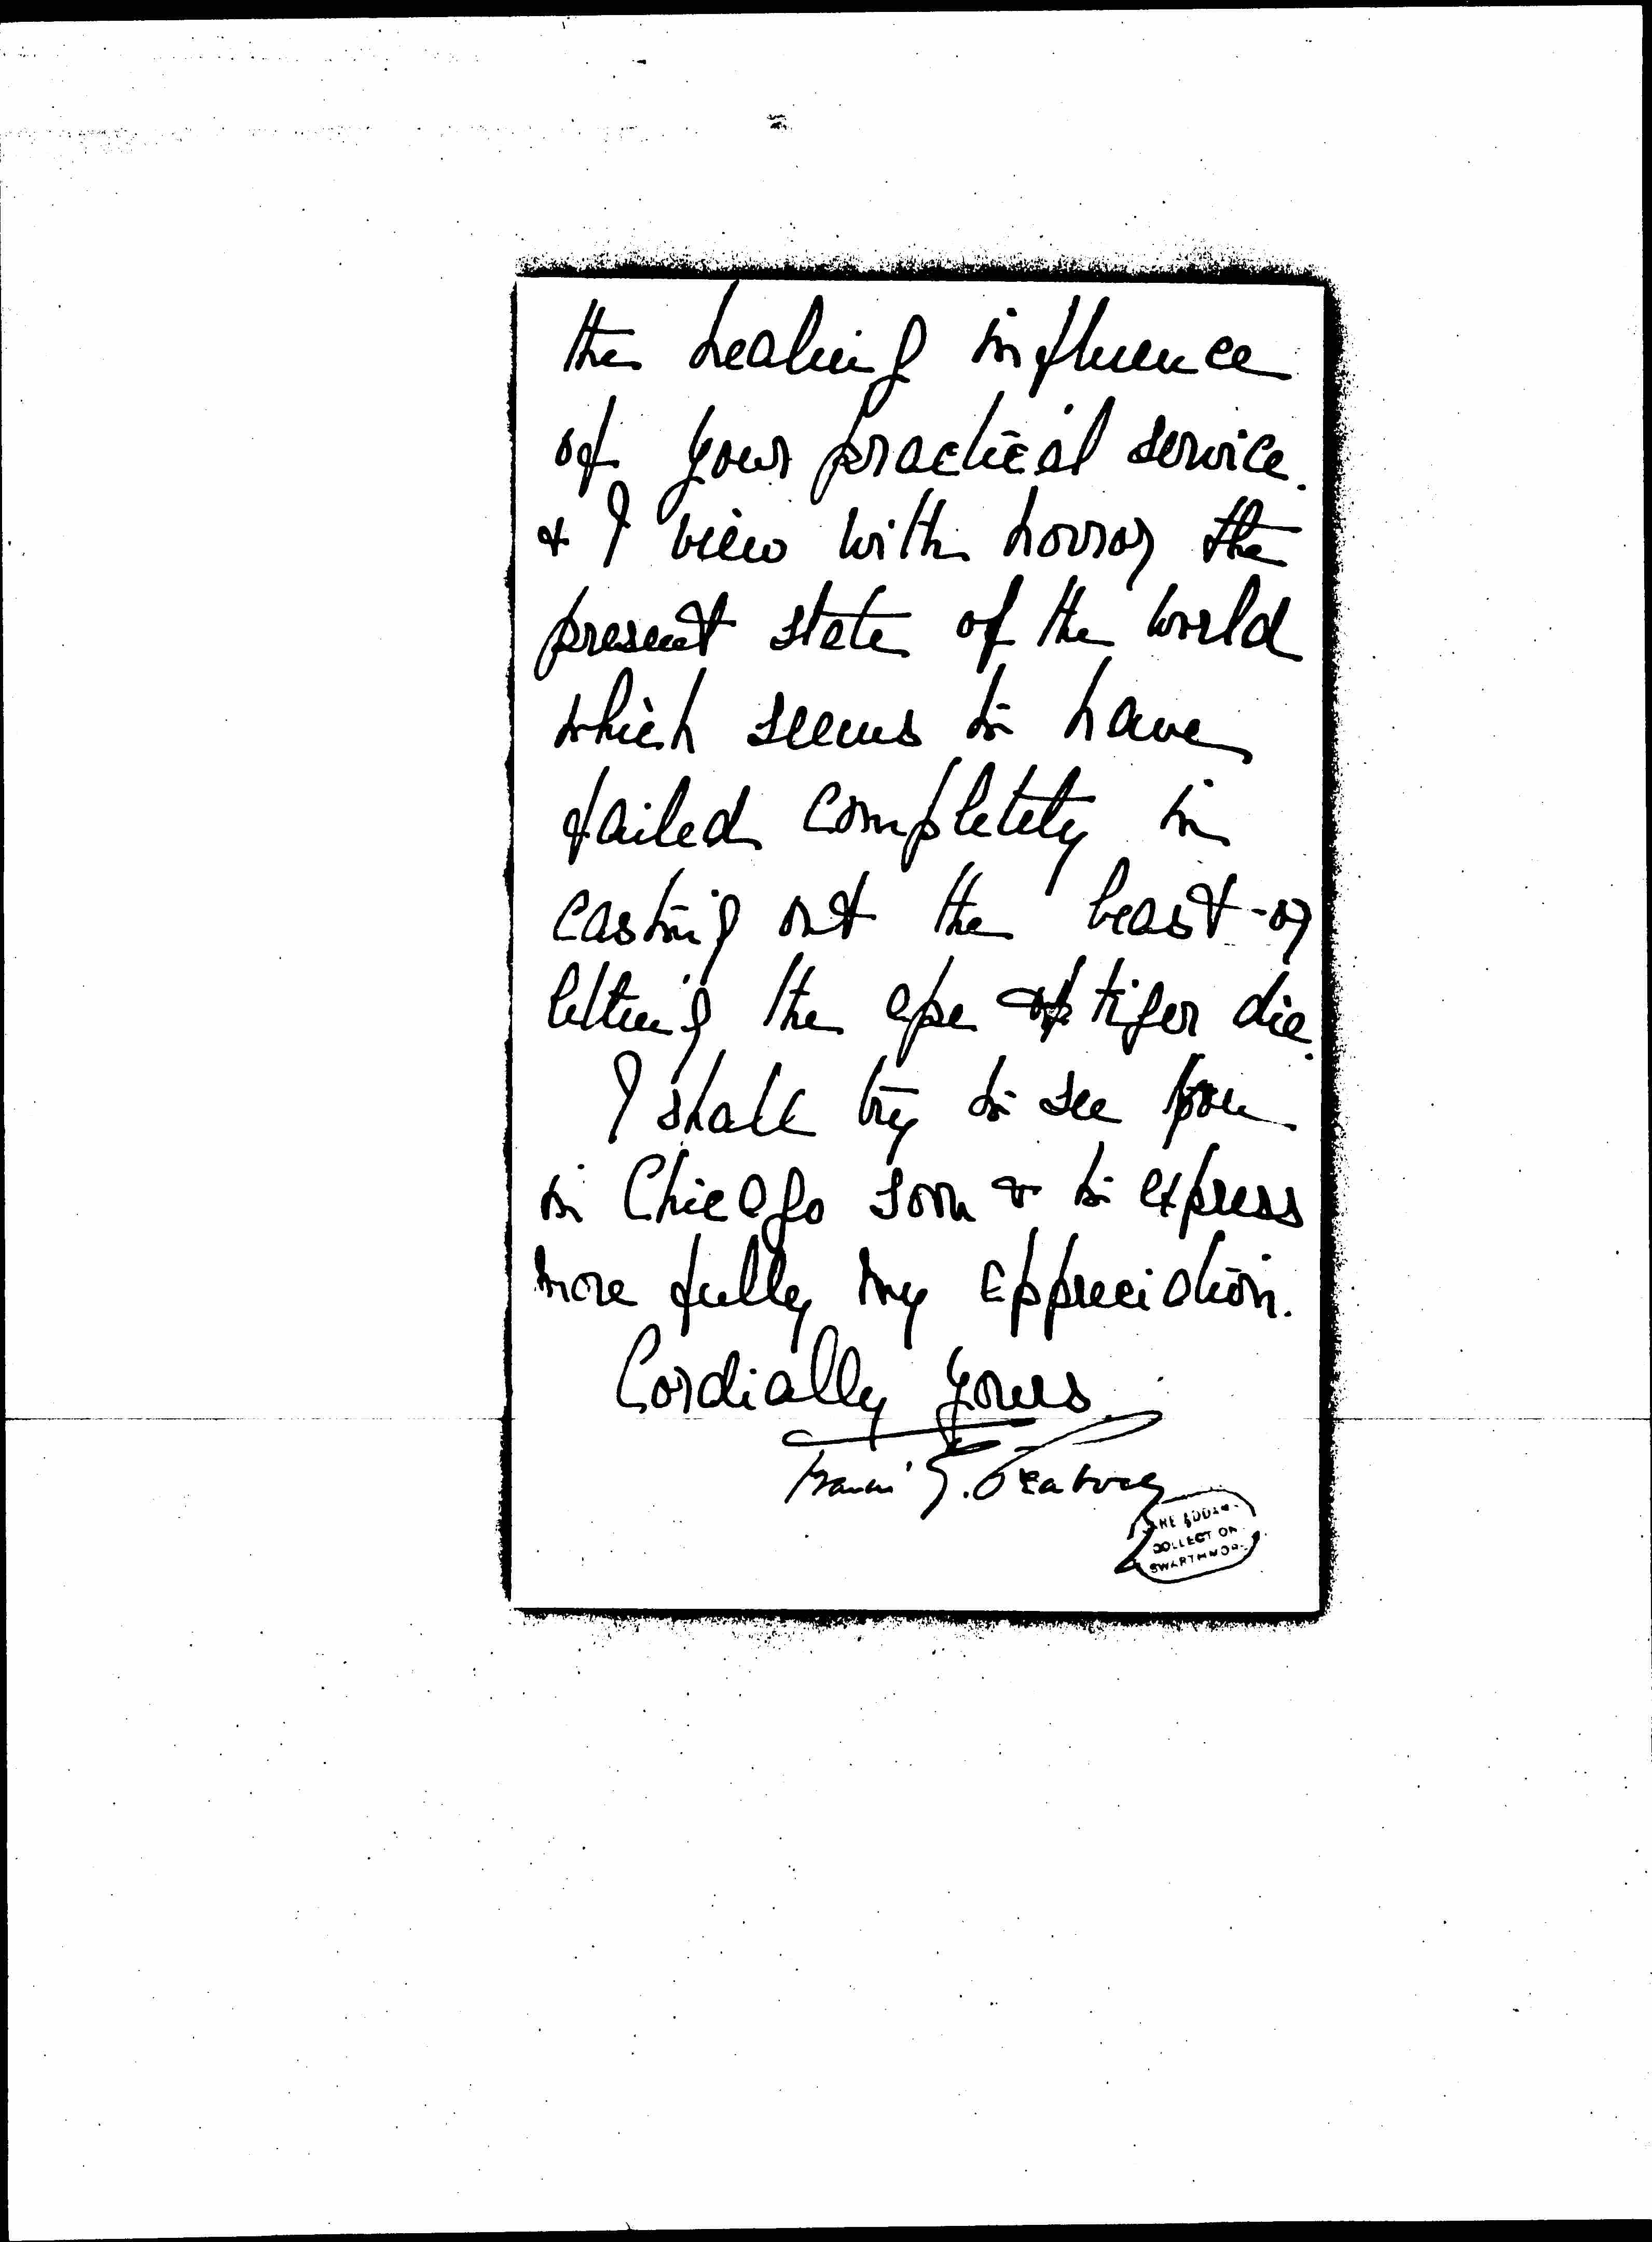 the healing influence
of your practical service.
& I view with horror the
present state of the world
which seems to have
failed completely in
casting out the beast - or
letting the ape & tiger die.
I shall try to see you
in Chicago soon & to express
more fully my appreciation.
Cordially yours
Francis G. Peabody
JANE ADDAMS
COLLECTION
SWARTHMORE